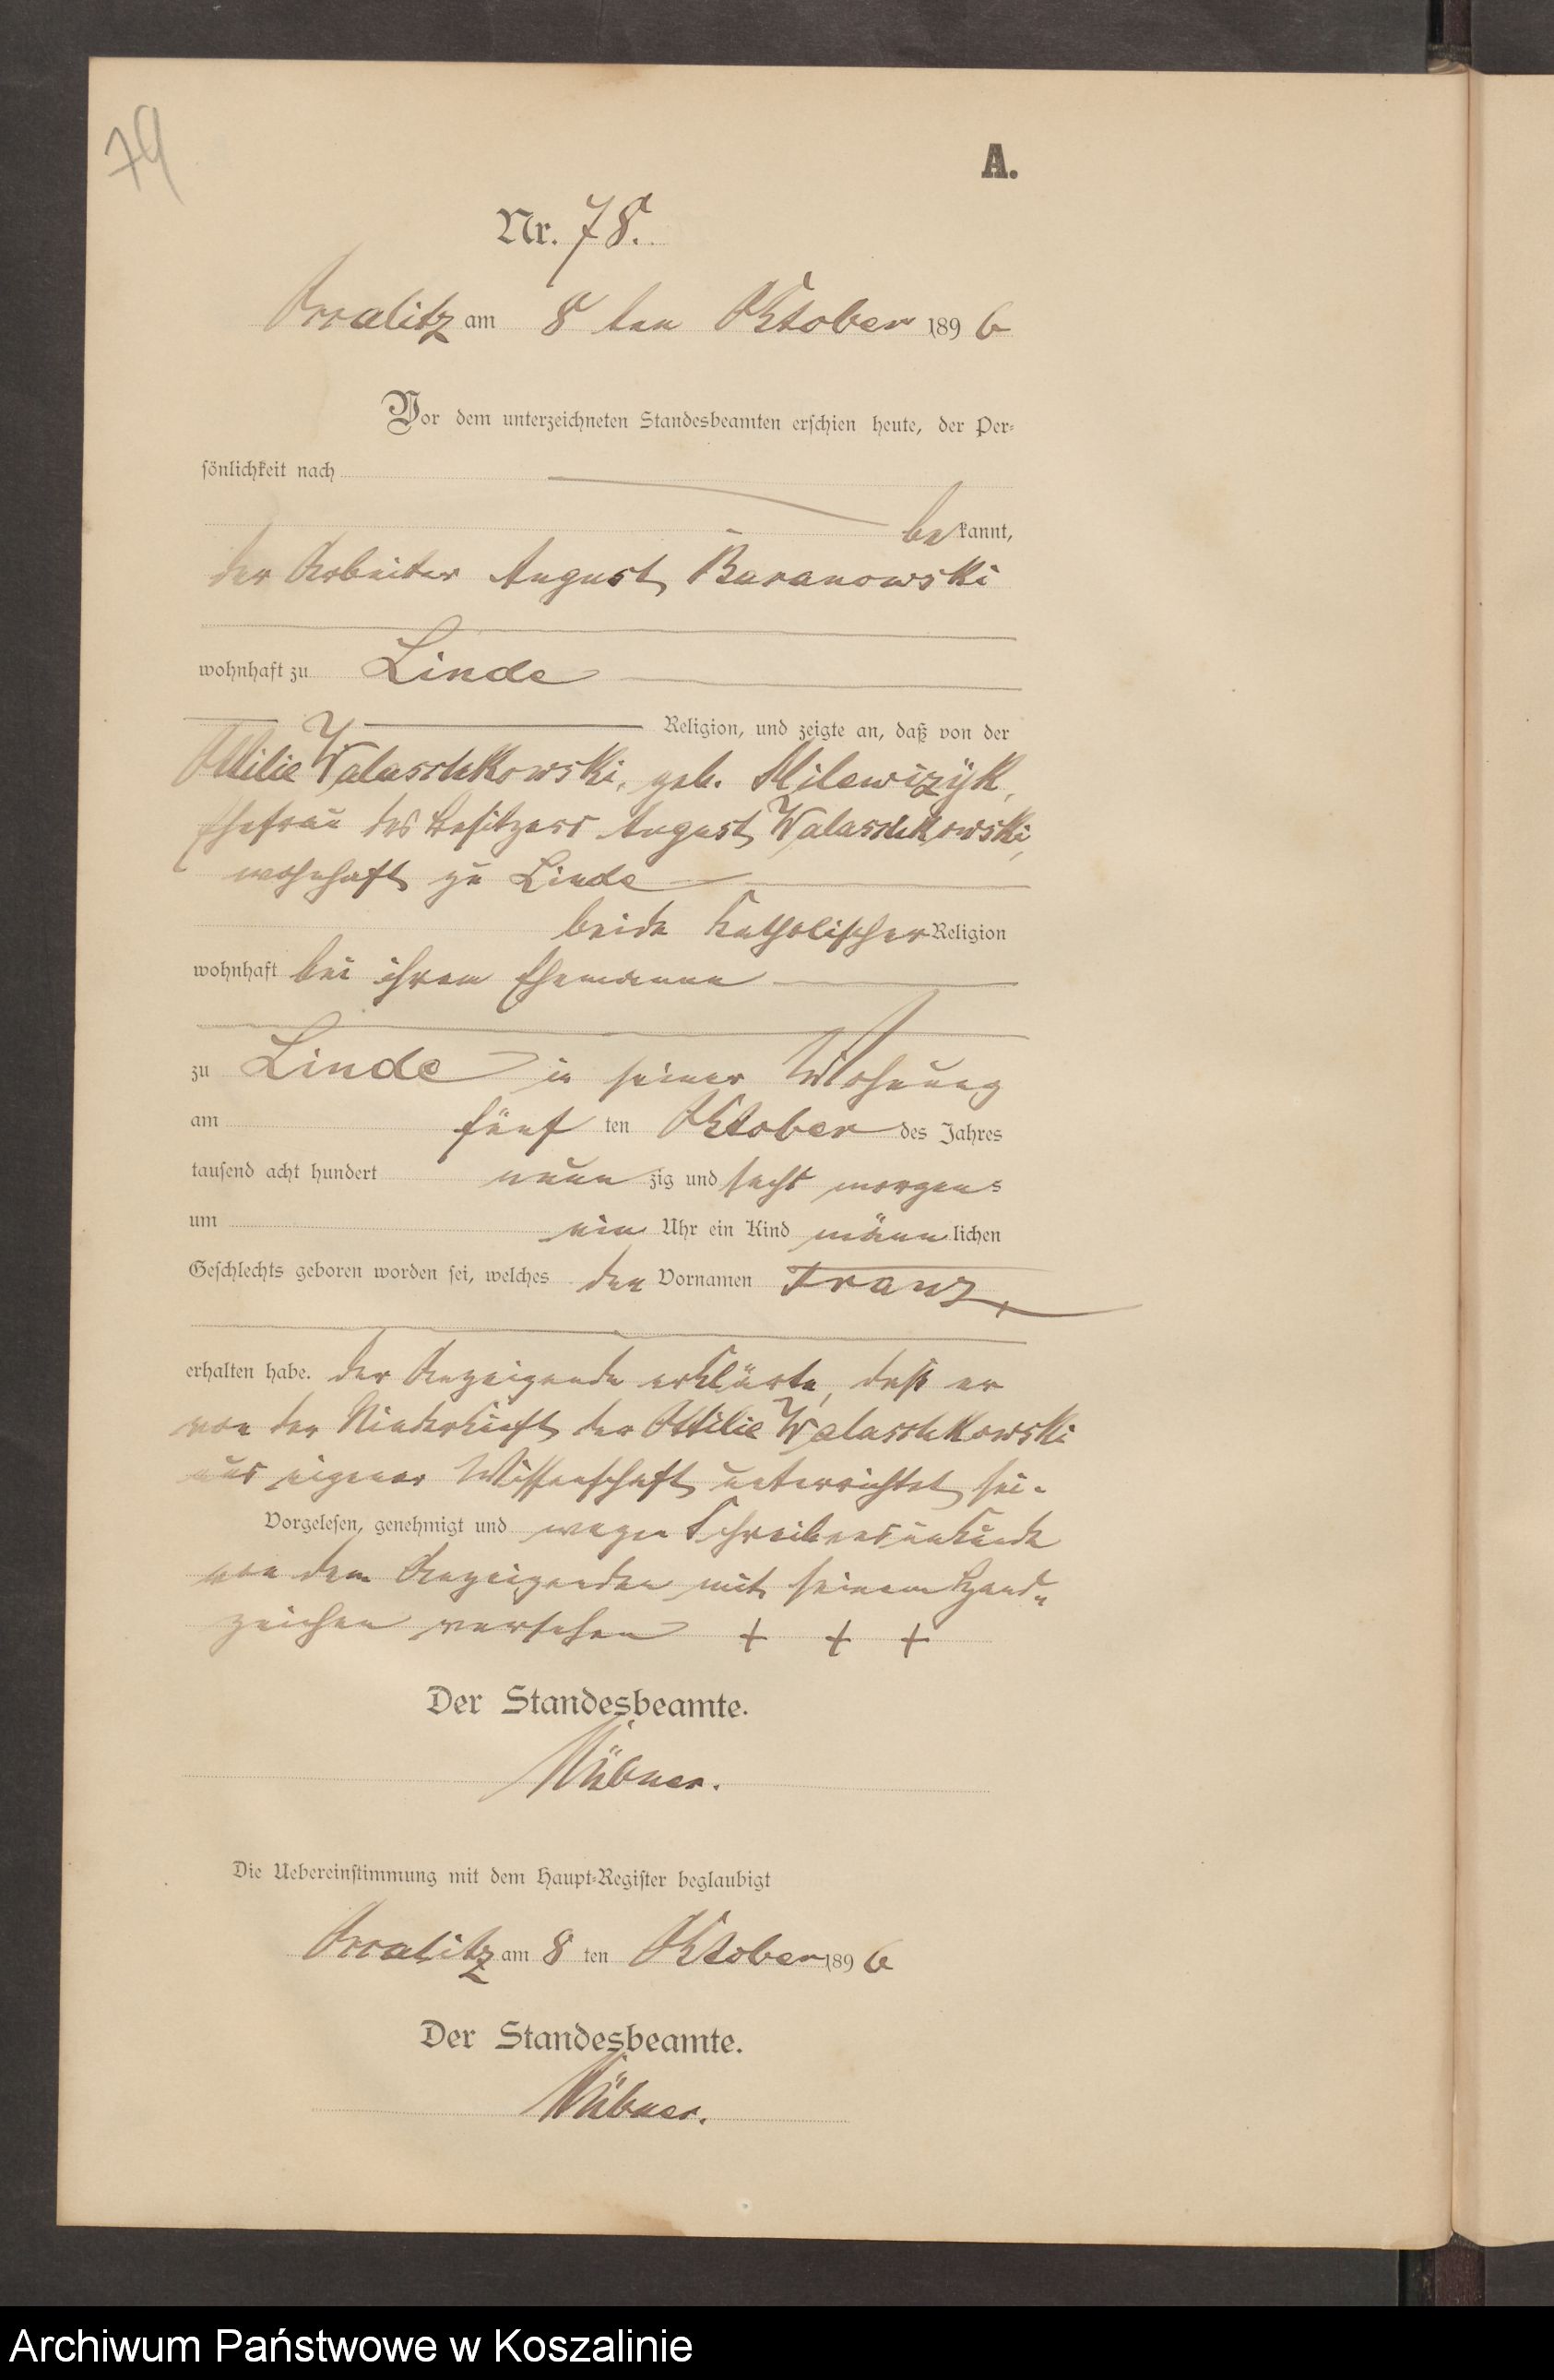 79
A.
Nr. 78.
am 8 ten Oktober 1896
Vor dem unterzeichneten Standesbeamten erschien heute, der Per-
sönlichkeit nach
bekannt,
der Arbeiter August Baranowski
wohnhaft zu Linde
Religion, und zeigte an, daß von der
Ottilie Walaschkowski, geb. Milewizÿk,
Ehefrau des Besitzers August Walaschkowski,
wohnhaft zu Linde
beide katholischer Religion
wohnhaft bei ihrem Ehemanne
zu Linde in seiner Wohnung
am fünf ten Oktober des Jahres
tausend acht hundert neun zig und sechs morgens
um ein Uhr ein Kind männlichen
Geschlechts geboren worden sei, welches den Vornamen Franz
erhalten habe. Der Anzeigende erklärte, daß er
von der Niederkunft der Ottilie Walaschkowski
aus eigener Wissenschaft unterrichtet sei.
Vorgelesen, genehmigt und wegen Schreibensunkunde
von dem Anzeigenden mit seinem Hand-
zeichen versehen + + +
Der Standesbeamte.
Die Uebereinstimmung mit dem Haupt-Register beglaubigt
am 8 ten Oktober 1896
Der Standesbeamte.
Archiwum Państwowe w Koszalinie